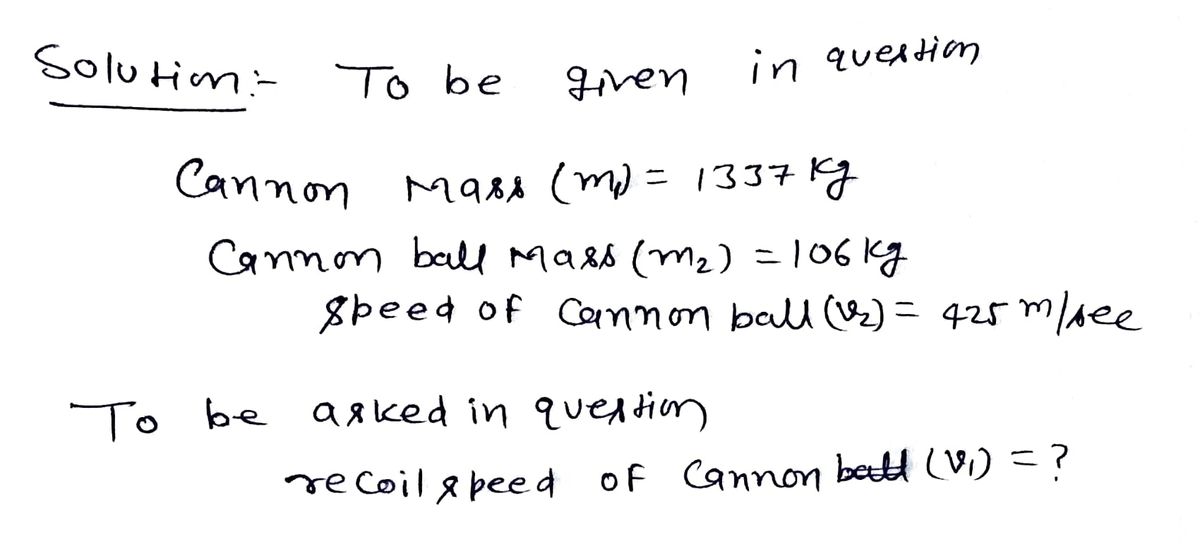 Solution:- To be given in question
Cannon Mass (m₁) = 1337 kg
Cannon ball Mass (m₂) = 106 kg
Speed of Cannon ball (v₂) = 425 m/sec
To be asked in question
recoil speed of Cannon ball (v₁) = ?